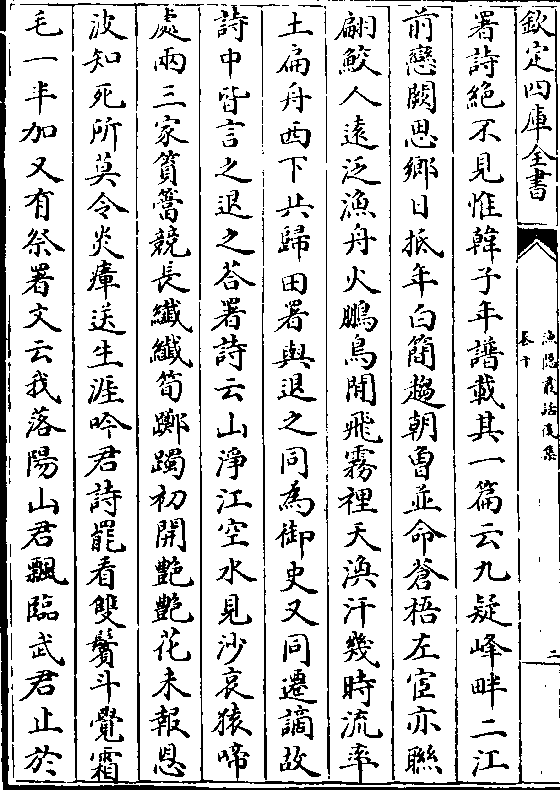 欽定四庫全書
漁隱叢話後集
卷十
二
署詩絶不見惟韓子年譜載其一篇云九疑峰畔二江
前戀闕思鄉日抵年白簡趨朝曽並命蒼梧左宦亦聯
翩鮫人逺泛漁舟火鵩鳥閒飛霧裡天渙汗幾時流率
土扁舟西下共歸田署與退之同為御史又同遷謫故
詩中皆言之退之荅署詩云山淨江空水見沙哀猿啼
處兩三家篔簹競長纖纖筍躑躅初開艶艶花未報恩
波知死所莫令炎瘴送生涯吟君詩罷看雙鬢斗覺霜
毛一半加又有祭署文云我落陽山君飄臨武君止於